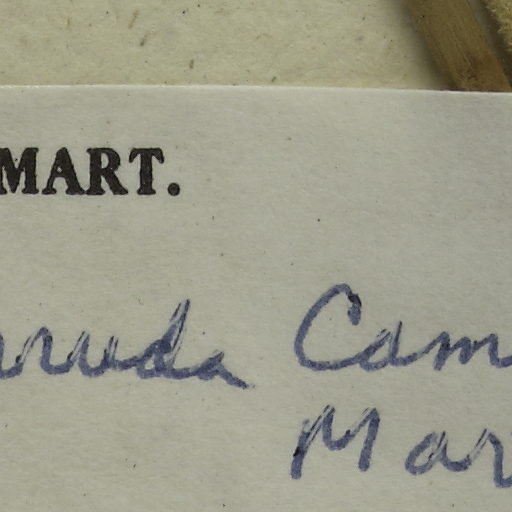 MART.
ruda Cam
Mar